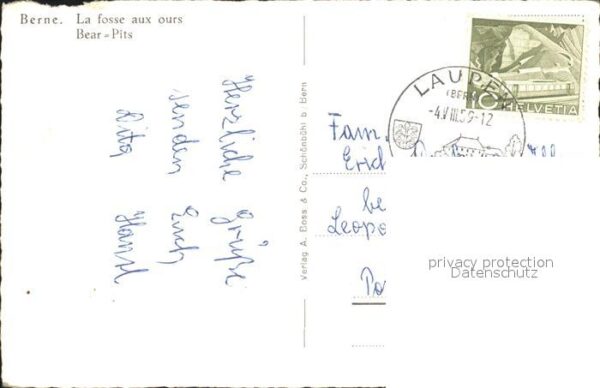 Berne. La fosse aux ours
Bear=Pits
Herzliche Grüße
senden Euch
Rita Hansl
Verlag A. Boss & Co., Schönbühl b/Bern
LAUPEN
(BERN)
-4.VIII.59-12
10 HELVETIA
Fam.
Erich
be
Leopo
Po
privacy protection
Datenschutz